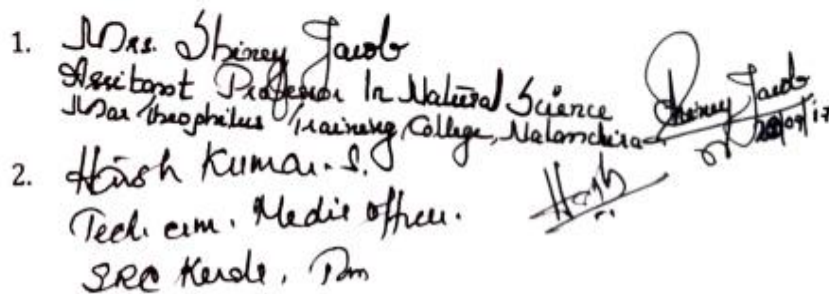 1. Mrs. Shiney Jacob
Assitant Professor In Natural Science
Mar Theophilus Training College, Nalanchira
Shiney Jacob
2. Harish Kumar. S.
Tech. cum. Media Officer.
SRC Kerala, Tvm